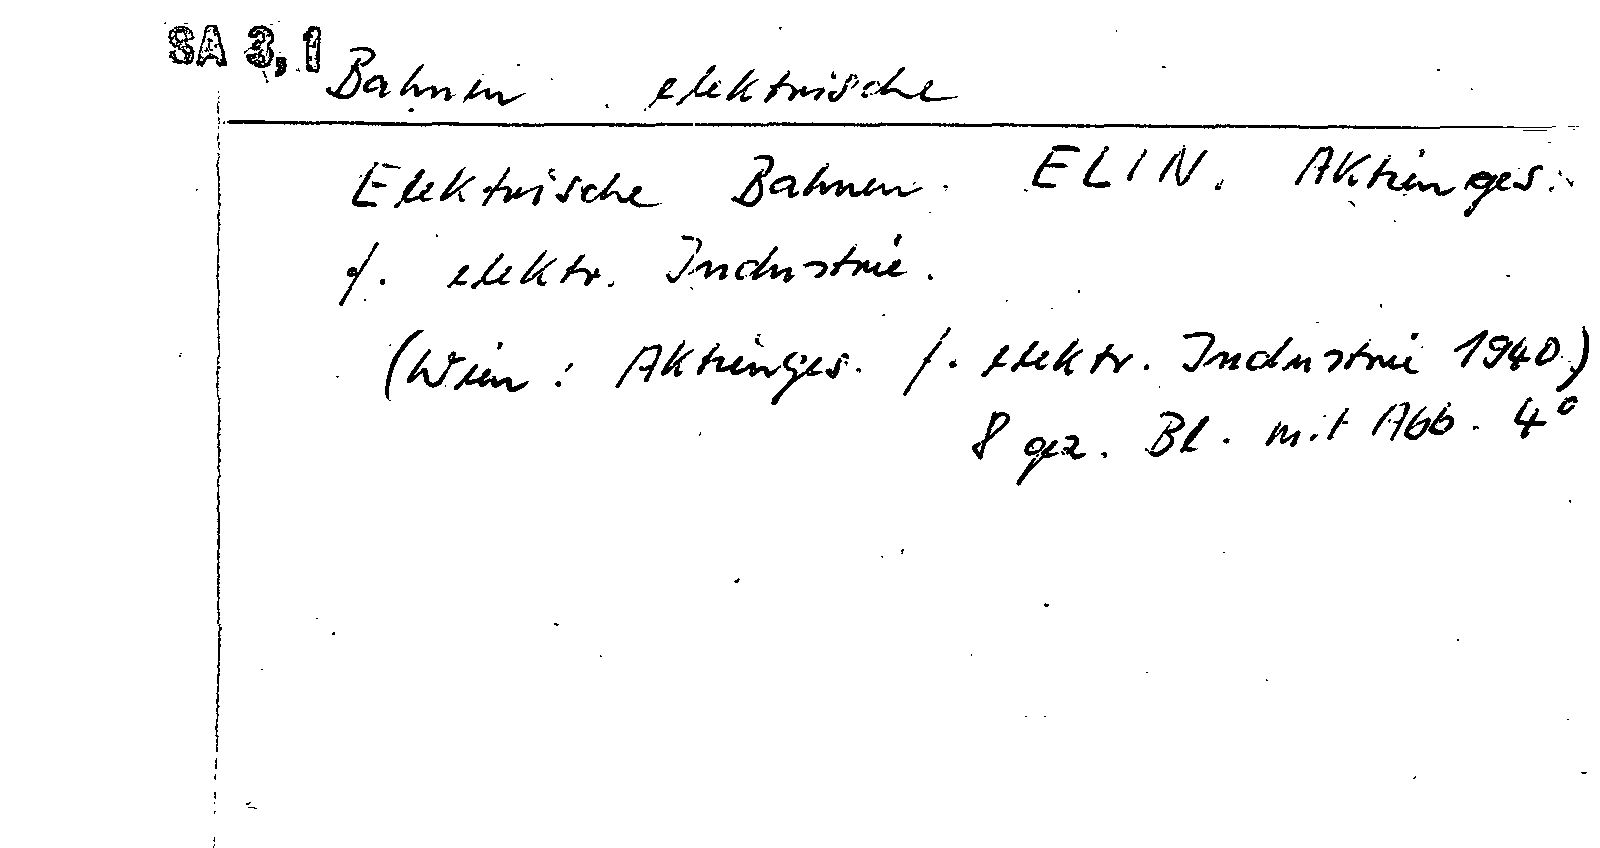 SA 3,1
Bahnen elektrische
Elektrische Bahnen. ELIN. Aktienges.
f. elektr. Industrie.
(Wien: Aktienges. f. elektr. Industrie 1940.)
8 gez. Bl. mit Abb. 4°